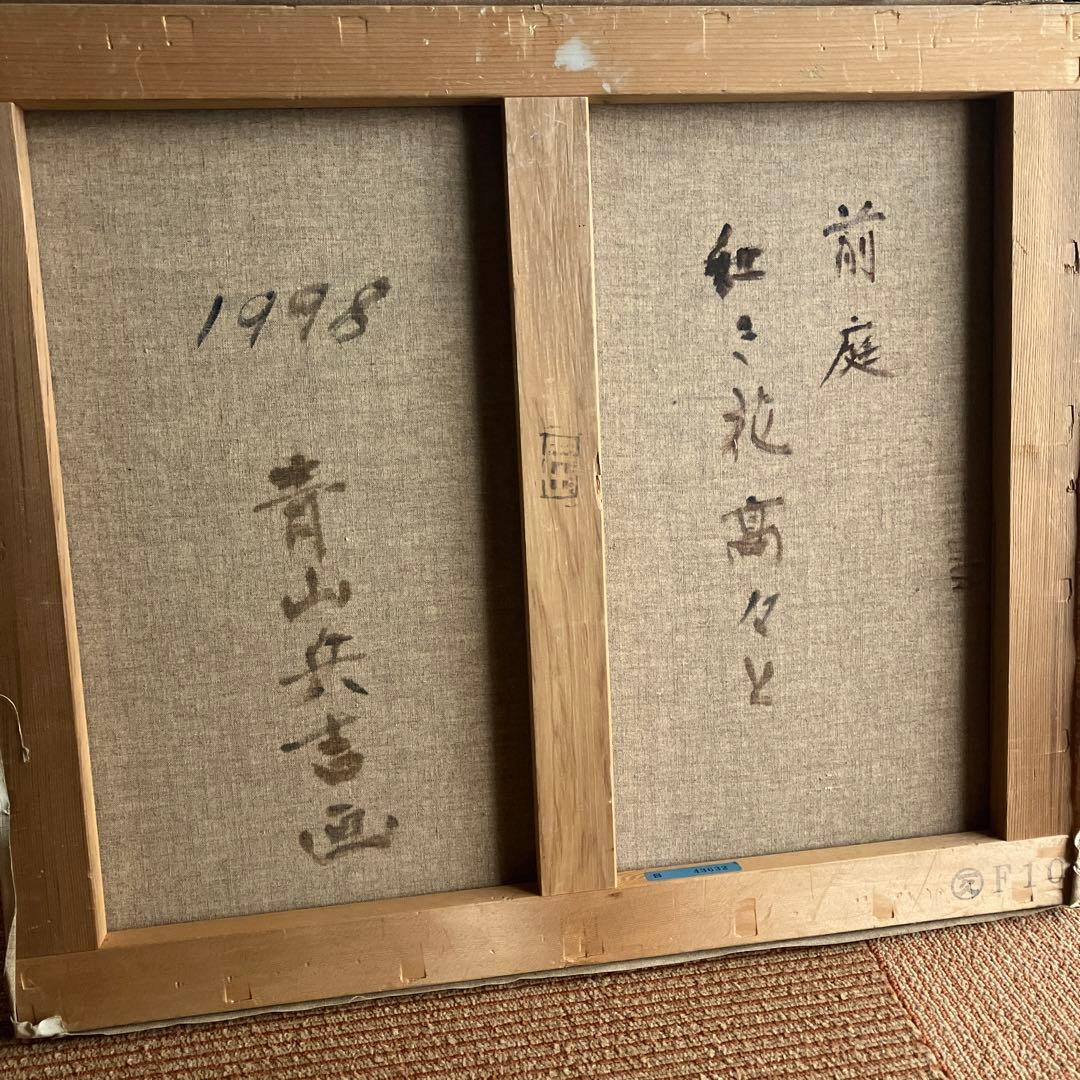 前庭
紅き花高々と
1998
青山兵吉画
B 43632
元 F10